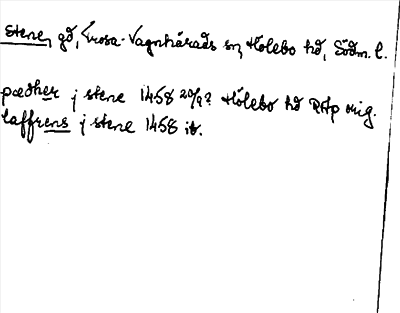 Stene, gd, Trosa-Vagnhärads sn, Hölebo hd, Södm. l.
pædher j stene 1458 20/9? Hölebo hd RAp orig.
laffrens j stene 1458 ib.